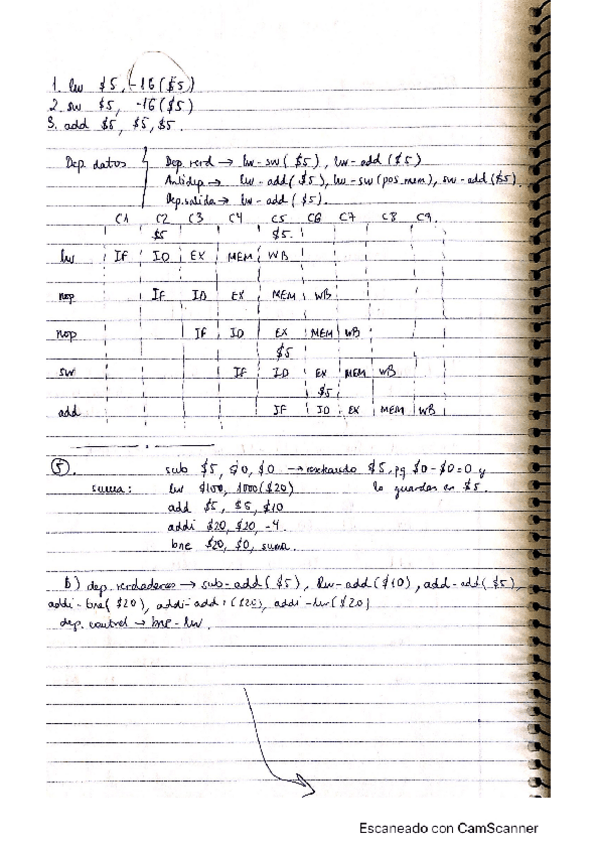 1. lw $5, -16($5)
2. sw $5, -16($5)
3. add $5, $5, $5.
Dep. datos Dep. verd → lw-sw($5), lw-add($5)
Antidep → lw-add($5), lw-sw(pos.mem), sw-add($5).
Dep. salida → lw-add($5).
C1 C2 C3 C4 C5 C6 C7 C8 C9.
$5 $5.
lw IF ID EX MEM WB
nop IF ID EX MEM WB
nop IF ID EX MEM WB
$5
sw IF ID EX MEM WB
$5
add IF ID EX MEM WB
5. sub $5, $0, $0 → $5, pq $0-$0=0 y
suma: lw $100, 1000($20) lo guardas en $5.
add $5, $5, $10
addi $20, $20, -4
bne $20, $0, suma.
b) dep. verdaderas → sub-add($5), lw-add($10), add-add($5),
addi-bne($20), addi-addi($20), addi-lw($20)
dep. control → bne-lw.
Escaneado con CamScanner